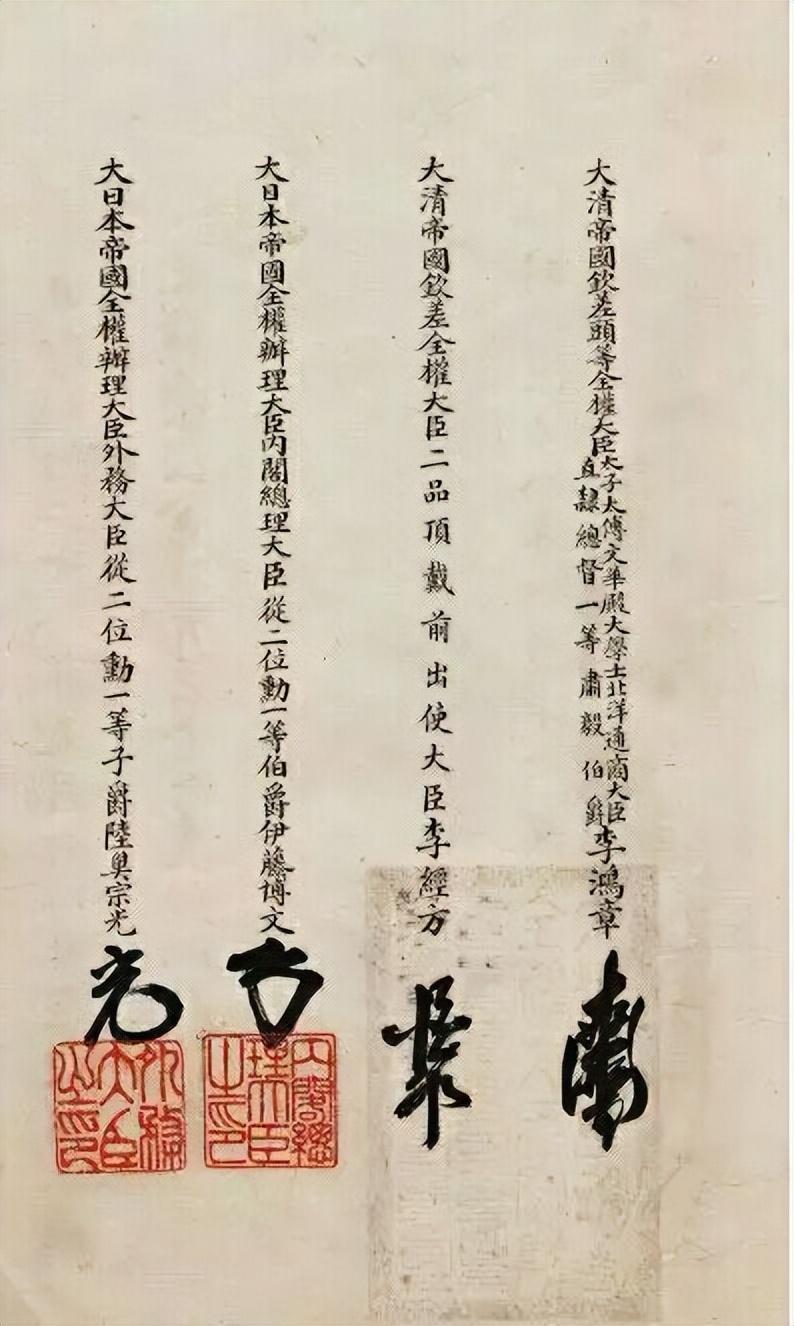 大清帝國欽差頭等全權大臣太子太傅文華殿大學士北洋通商大臣
直隸總督一等肅毅伯爵李鴻章
大清帝國欽差全權大臣二品頂戴前出使大臣李經方
大日本帝國全權辦理大臣內閣總理大臣從二位勳一等伯爵伊藤博文
內閣總理大臣之印
大日本帝國全權辦理大臣外務大臣從二位勳一等子爵陸奧宗光
外務大臣之印